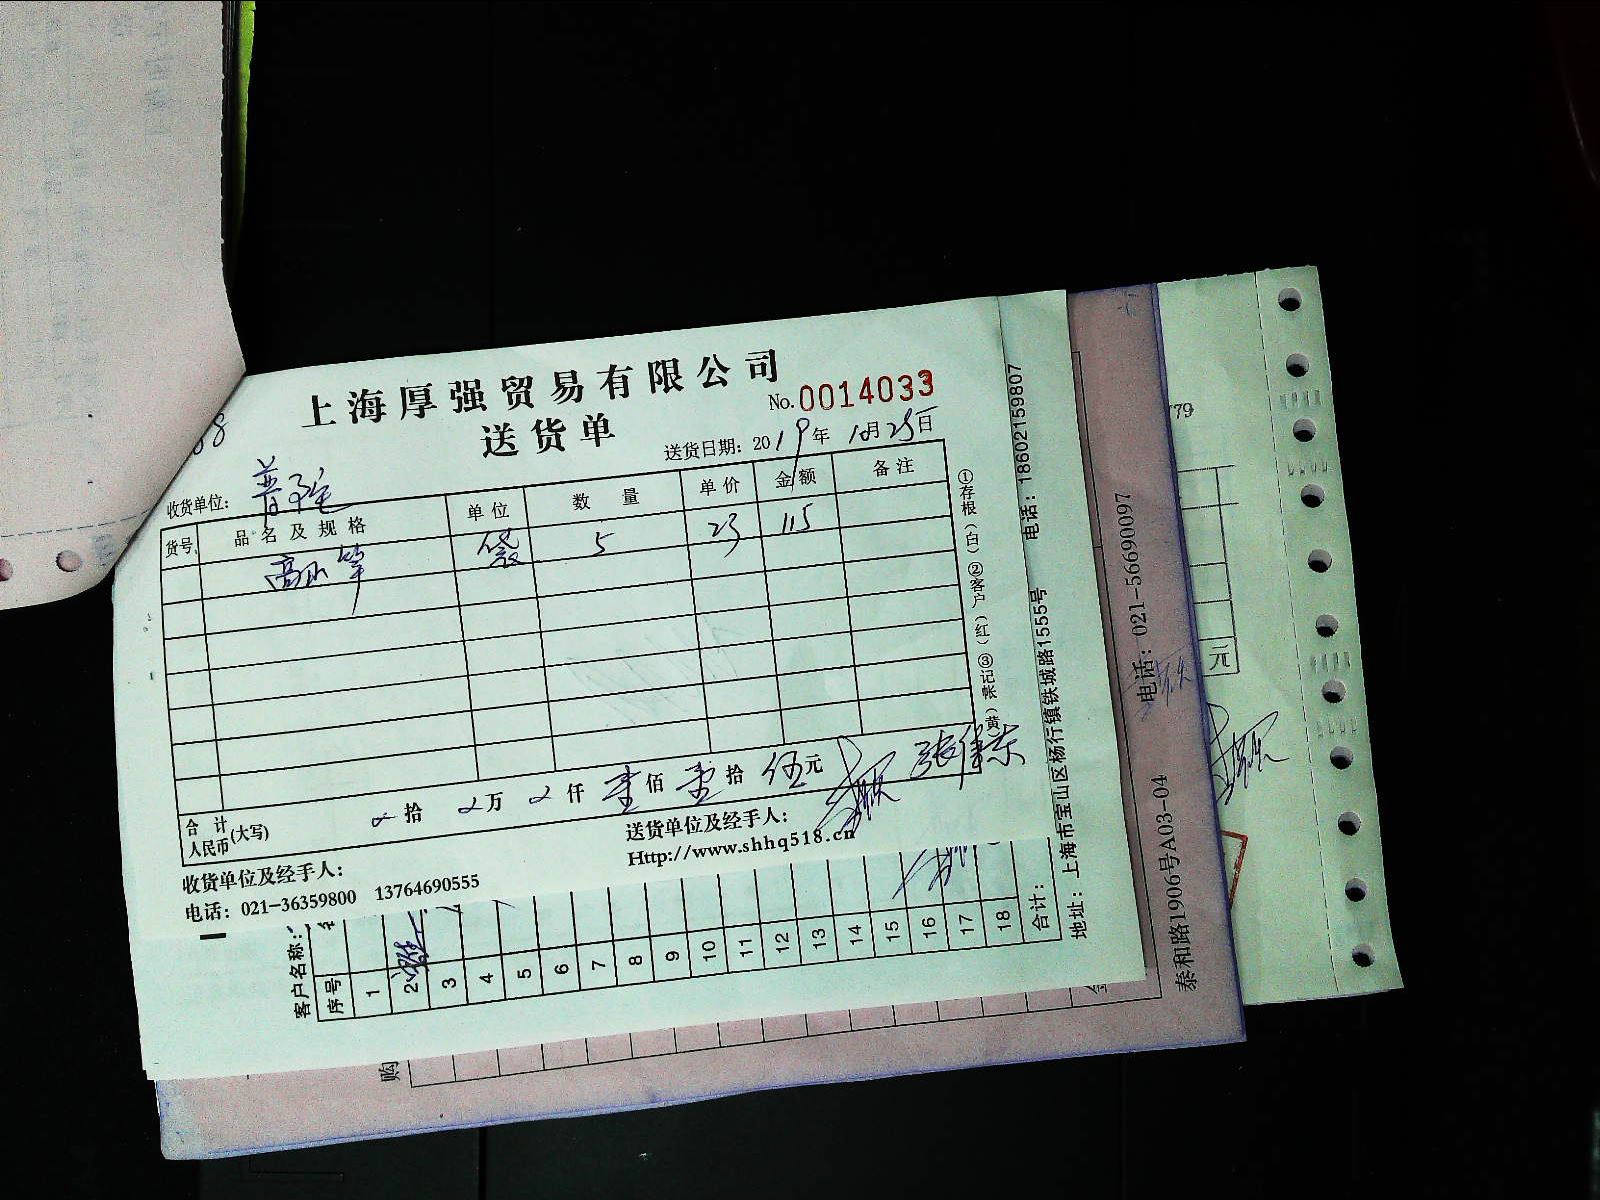 上海厚强贸易有限公司
送货单
No. 0014033
送货日期：2019年10月25日
收货单位：
货号 品名及规格 单位 数量 单价 金额 备注
高山笋 袋 5 23 115
合计人民币(大写) 拾 万 仟 壹佰 壹拾 伍元
收货单位及经手人：
送货单位及经手人：
电话：021-36359800 13764690555
Http://www.shhq518.cn
①存根（白）②客户（红）③记帐（黄
电话：18602159807
地址：上海市宝山区杨行镇铁城路1555号
客户名称：
序号
1
2
3
4
5
6
7
8
9
10
11
12
13
14
15
16
17
18
合计：
电话：021-56690097
泰和路1906号A03-04
购
779
元